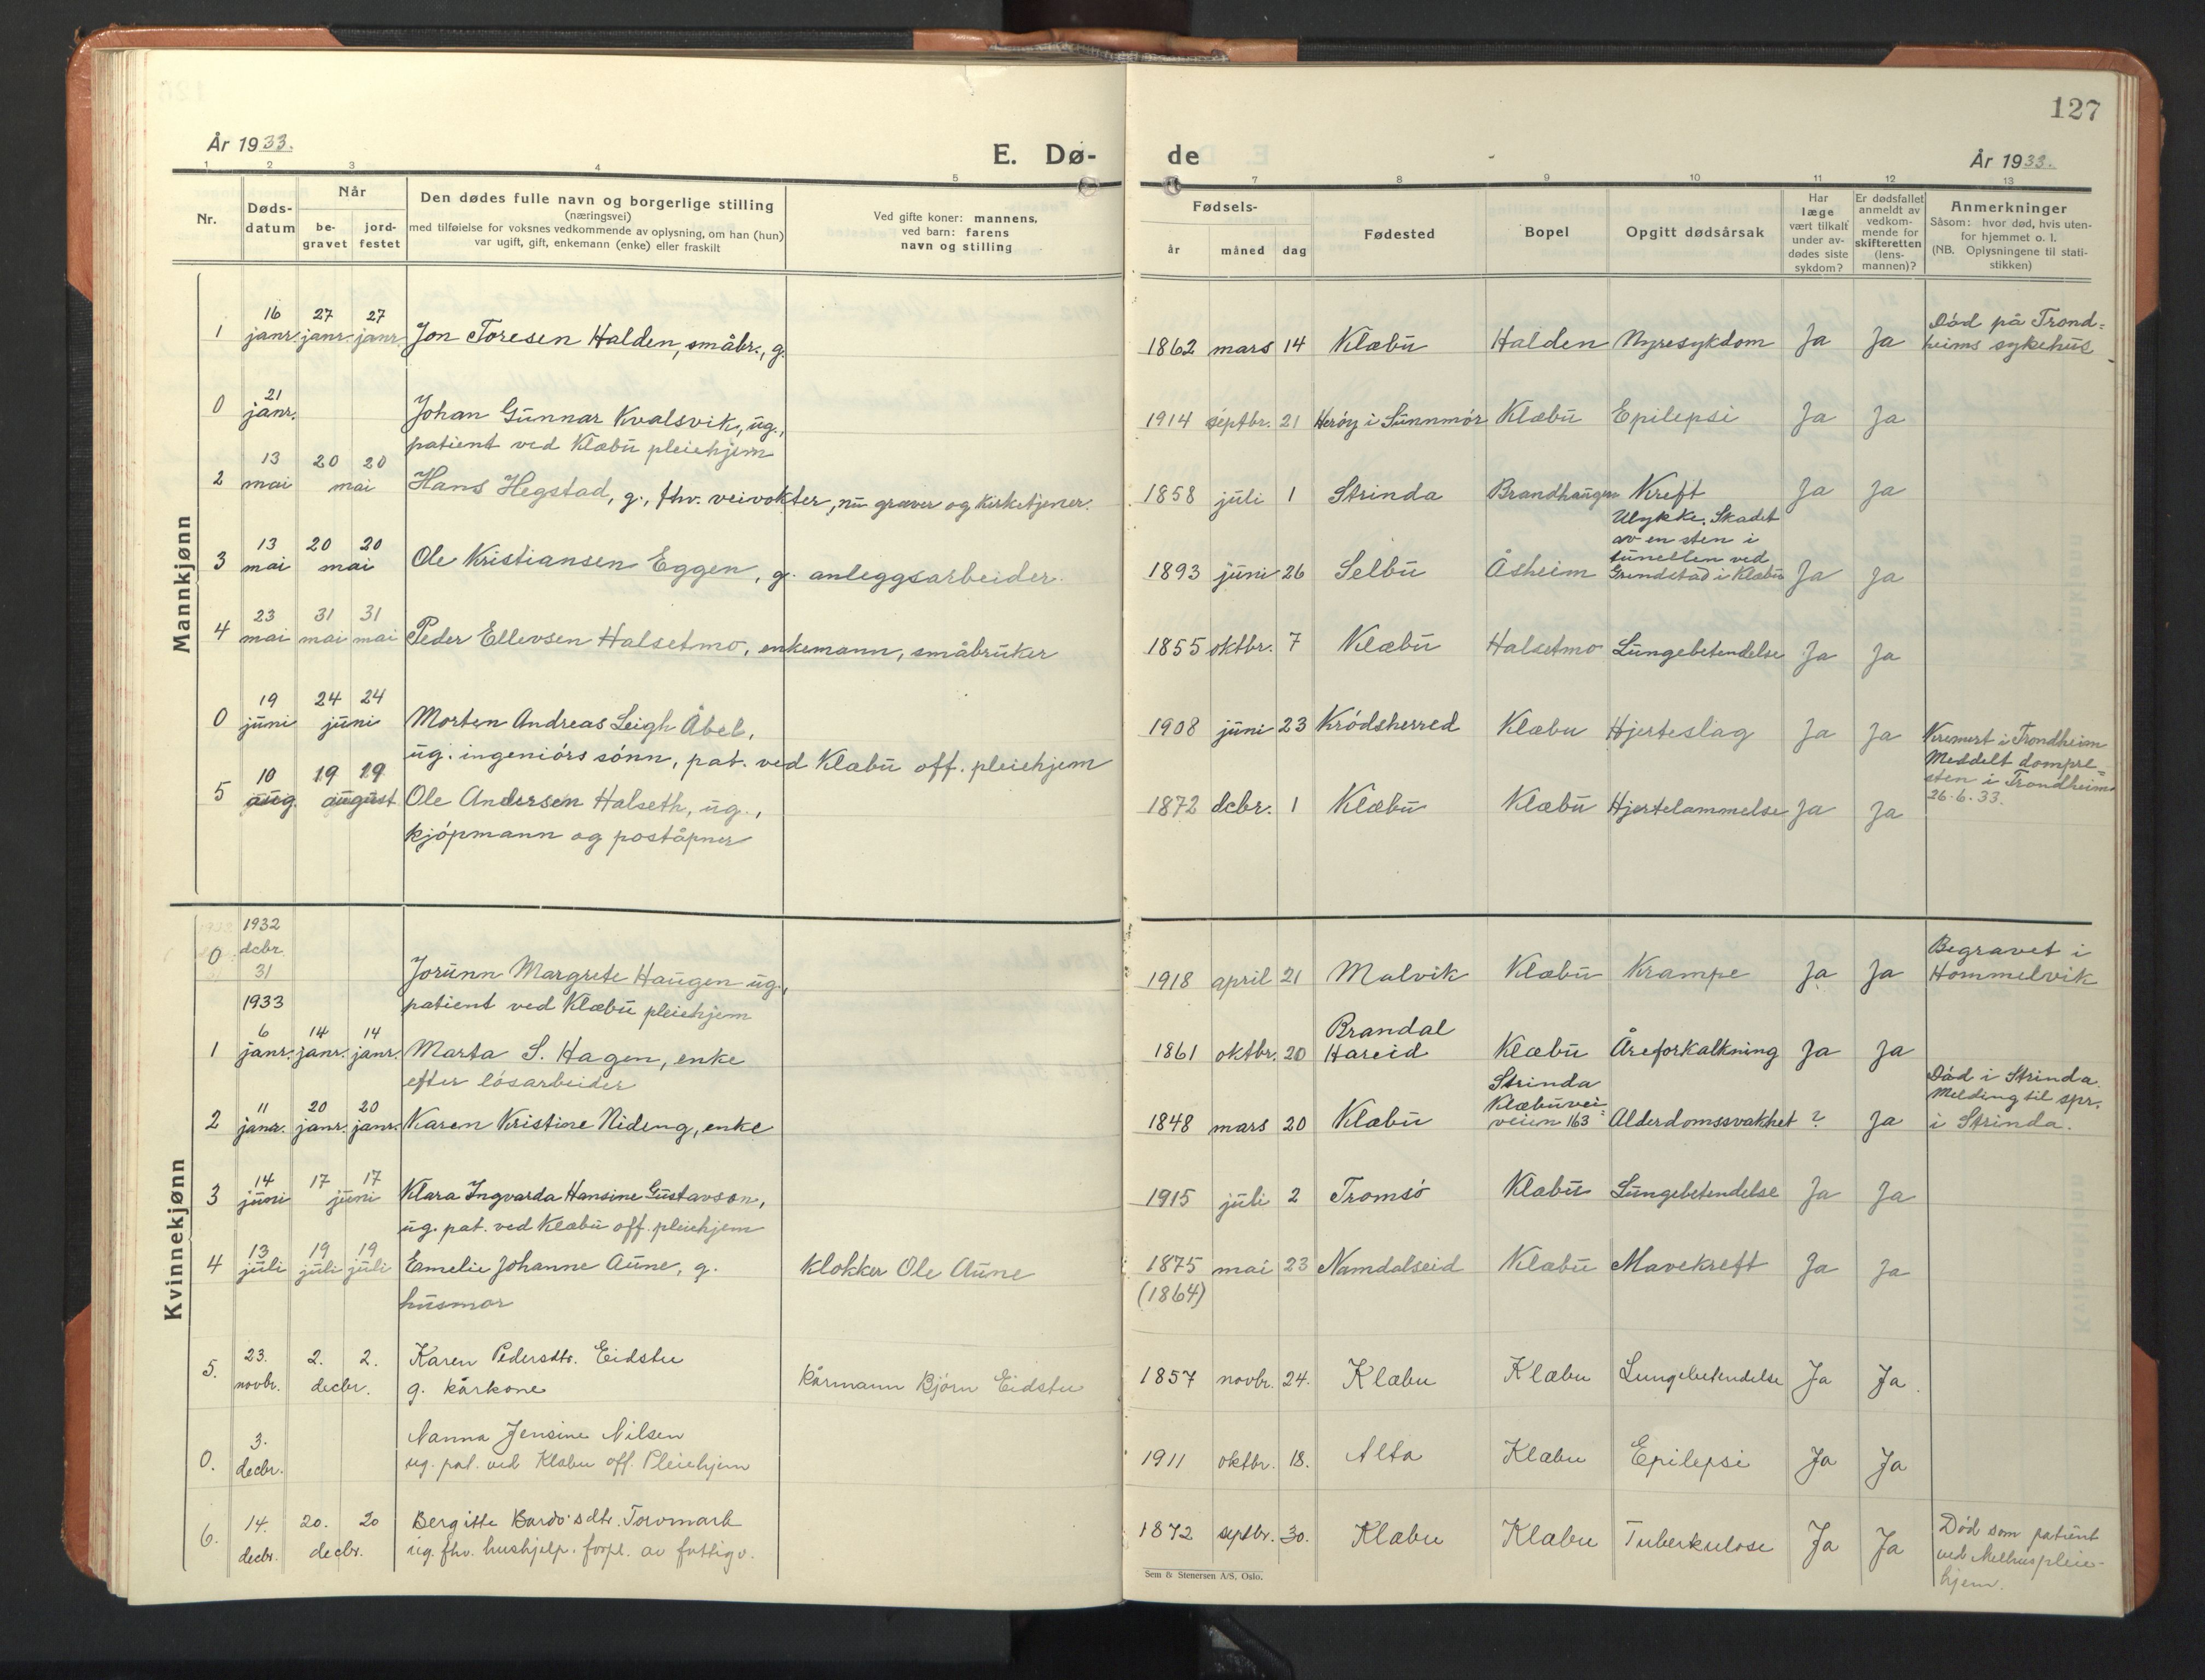 127
År 1933.
E. Dø-
de
År 1933.
1 2 3 4 5
7 8 9 10 11 12 13
Nr.
Døds-
datum
Når
be-
gravet
jord-
festet
Den dødes fulle navn og borgerlige stilling
(næringsvei)
med tilføielse for voksnes vedkommende av oplysning, om han (hun)
var ugift, gift, enkemann (enke) eller fraskilt
Ved gifte koner: mannens,
ved barn: farens
navn og stilling
Fødsels-
år måned dag
Fødested
Bopel
Opgitt dødsårsak
Har
læge
vært tilkalt
under av-
dødes siste
sykdom?
Er dødsfallet
anmeldt av
vedkom-
mende for
skifteretten
(lens-
mannen)?
Anmerkninger
Såsom: hvor død, hvis uten-
for hjemmet o. l.
(NB. Oplysningene til stati-
stikken)
Mannkjønn
16 27 27
1 janr. janr. janr. Jon Toresen Halden, småbr., g. 1862 mars 14 Klæbu Halden Nyresykdom Ja Ja
Død på Trond=
heims sykehus
21
0 janr. Johan Gunnar Kvalsvik, ug., 1914 septbr. 21 Herøy i Sunnmør Klæbu Epilepsi Ja Ja
patient ved Klæbu pleiehjem
13 20 20
2 mai mai Hans Hegstad, g., fhv. veivokter, nu graver og kirketjener. 1858 juli 1 Strinda Brandhaugen Kreft Ja Ja
13 20 20
3 mai mai Ole Kristiansen Eggen, g. anleggsarbeider. 1893 juni 26 Selbu Åsheim
Ulykke. Skadet
av en sten i
tunellen ved
Grendstad i Klæbu Ja Ja
23 31 31
4 mai mai mai Peder Ellevsen Halsetmo, enkemann, småbruker 1855 oktbr. 7 Klæbu Halsetmo Lungebetendelse Ja Ja
19 24 24
0 juni juni Morten Andreas Leigh Åbel, 1908 juni 23 Krødsherred Klæbu Hjerteslag Ja Ja
ug. ingeniørs sønn, pat. ved Klæbu off. pleiehjem
Kremert i Trondheim
Meddelt dompro=
sten i Trondheim
26.6.33.
10 19 19
5 aug. august Ole Andersen Halseth, ug., 1872 dcbr. 1 Klæbu Klæbu Hjertelammelse Ja Ja
kjøpmann og poståpner
Kvinnekjønn
1932
dcbr.
0 31 Jorunn Margrete Haugen ug., 1918 april 21 Malvik Klæbu Krampe Ja Ja
patient ved Klæbu pleiehjem
Begravet i
Hommelvik
1933
6 14 14
1 janr. janr. janr. Marta S. Hagen, enke 1861 oktbr. 20 Brandal
Hareid Klæbu Åreforkalkning Ja Ja
efter løsarbeider
11 20 20
2 janr. janr. janr. Karen Kristine Nideng, enke 1848 mars 20 Klæbu
Strinda
Klæbuvei=
veien 163 Alderdomssvakhet ? Ja
Død i Strinda.
Melding til spr.
i Strinda.
14 17 17
3 juni juni Klara Ingvarda Hansine Gustavson, 1915 juli 2 Tromsø Klæbu Lungebetendelse Ja Ja
ug. pat. ved Klæbu off. pleiehjem
13 19 19
4 juli juli juli Emelie Johanne Aune, g. klokker Ole Aune 1875 mai 23 Namdalseid Klæbu Mavekreft Ja Ja
husmor (1864)
23. 2. 2.
5. novbr. decbr. Karen Pedersdtr. Eidstu
g. kårkone kårmann Bjørn Eidstu 1857 novbr. 24. Klæbu Klæbu Lungebetendelse Ja Ja.
3.
0. decbr. Nanna Jensine Nilsen
ug. pat. ved Klæbu off. Pleiehjem 1911 oktbr. 18. Alta Klæbu Epilepsi Ja Ja
14. 20. 20
6. decbr. decbr. Bergitte Bårdsdtr. Torvmark
ug. fhv. hushjelp. forpl. av fattigv. 1872 septbr. 30. Klæbu Klæbu Tuberkulose Ja Ja
Død som patient
ved Melhus pleie-
hjem.
Sem & Stenersen A/S, Oslo.